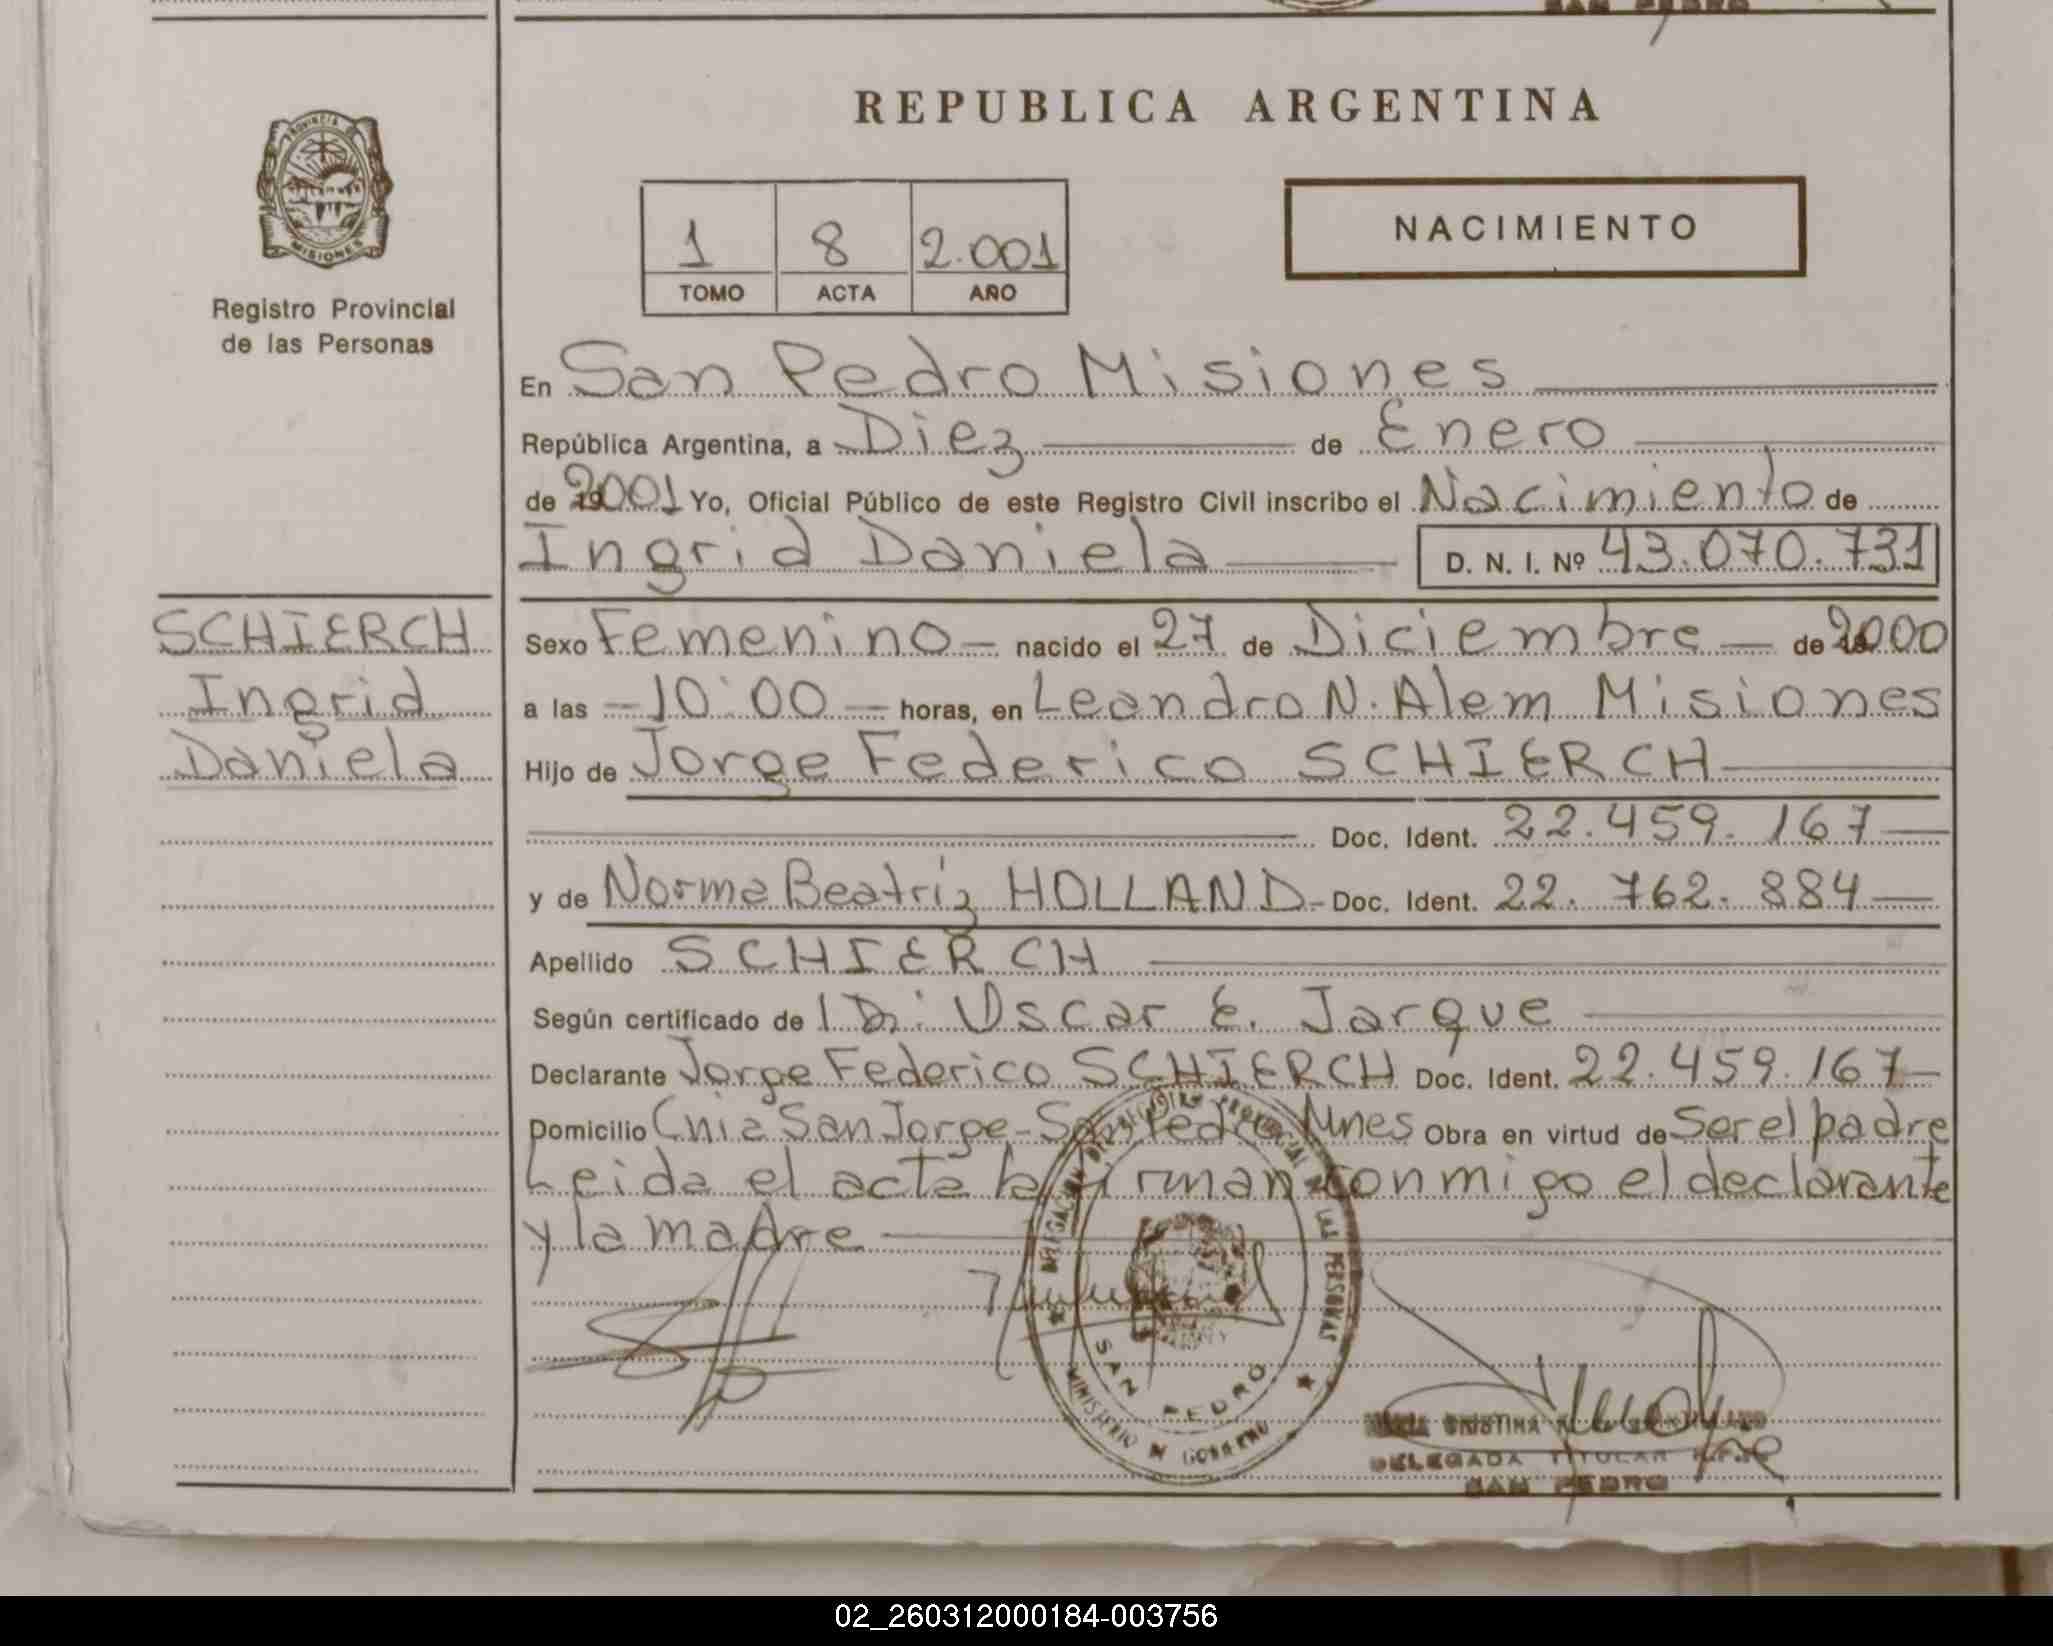 SAN PEDRO
REPUBLICA ARGENTINA
PROVINCIA DE
MISIONES
Registro Provincial
de las Personas
1 8 2.001
TOMO ACTA AÑO
NACIMIENTO
En San Pedro Misiones
República Argentina, a Diez de Enero
de 2001 Yo, Oficial Público de este Registro Civil inscribo el Nacimiento de
Ingrid Daniela D. N. I. Nº 43.070.731
SCHIERCH
Ingrid
Daniela
Sexo Femenino - nacido el 27 de Diciembre - de 2000
a las - 10:00 - horas, en Leandro N. Alem Misiones
Hijo de Jorge Federico SCHIERCH
Doc. Ident. 22.459.167
y de Norma Beatriz HOLLAND - Doc. Ident. 22.762.884
Apellido SCHIERCH
Según certificado de Oscar E. Jarque
Declarante Jorge Federico SCHIERCH Doc. Ident. 22.459.167
Domicilio Cnia San Jorge - San Pedro Mnes Obra en virtud de Ser el padre
Leida el acta la firman conmigo el declarante
y la madre
DELEGACION DEL REGISTRO PROVINCIAL DE LAS PERSONAS
SAN PEDRO
MINISTERIO DE GOBIERNO
CRISTINA
DELEGADA TITULAR
SAN PEDRO
02_260312000184-003756